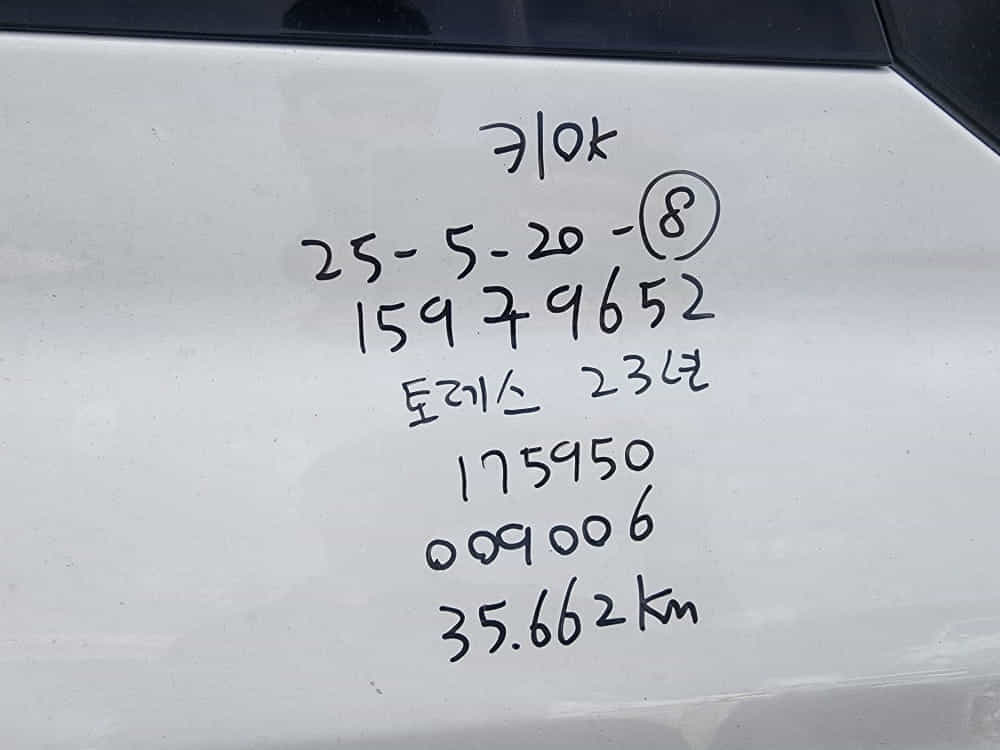 키ok
25-5-20-⑧
159구9652
토레스 23년
175950
009006
35.662km